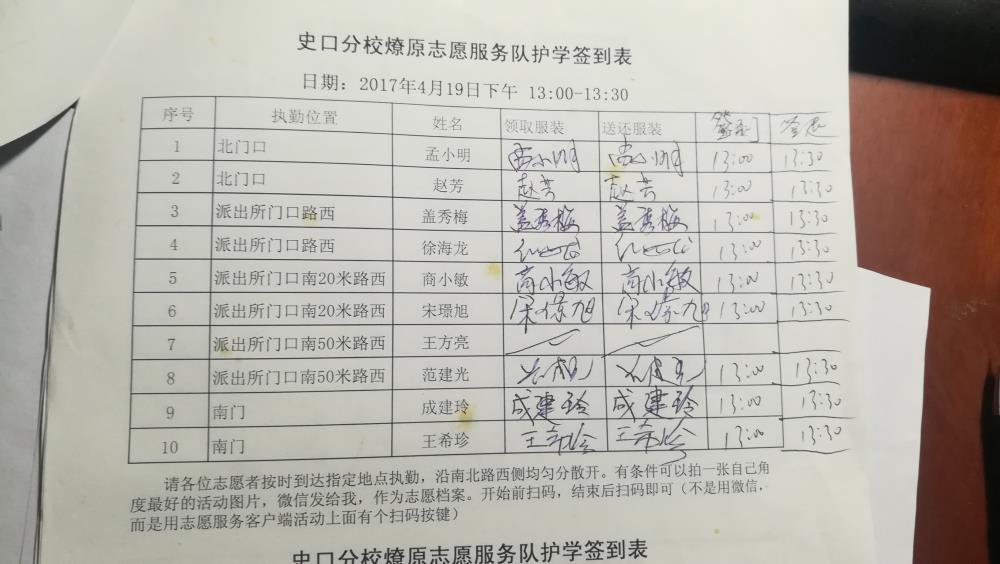 史口分校燎原志愿服务队护学签到表
日期：2017年4月19日下午 13:00-13:30
序号 执勤位置 姓名 领取服装 送还服装 签到 签退
1 北门口 孟小明 孟小明 孟小明 13:00 13:30
2 北门口 赵芳 赵芳 赵芳 13:00 13:30
3 派出所门口路西 盖秀梅 盖秀梅 盖秀梅 13:00 13:30
4 派出所门口路西 徐海龙 13:00 13:30
5 派出所门口南20米路西 商小敏 商小敏 商小敏 13:00 13:30
6 派出所门口南20米路西 宋璟旭 宋璟旭 宋璟旭 13:00 13:30
7 派出所门口南50米路西 王方亮
8 派出所门口南50米路西 范建光 13:00 13:30
9 南门 成建玲 成建玲 成建玲 13:00 13:30
10 南门 王希珍 王希珍 王希珍 13:00 13:30
请各位志愿者按时到达指定地点执勤，沿南北路西侧均匀分散开。有条件可以拍一张自己角
度最好的活动图片，微信发给我，作为志愿档案。开始前扫码，结束后扫码即可（不是用微信，
而是用志愿服务客户端活动上面有个扫码按键）
史口分校燎原志愿服务队护学签到表